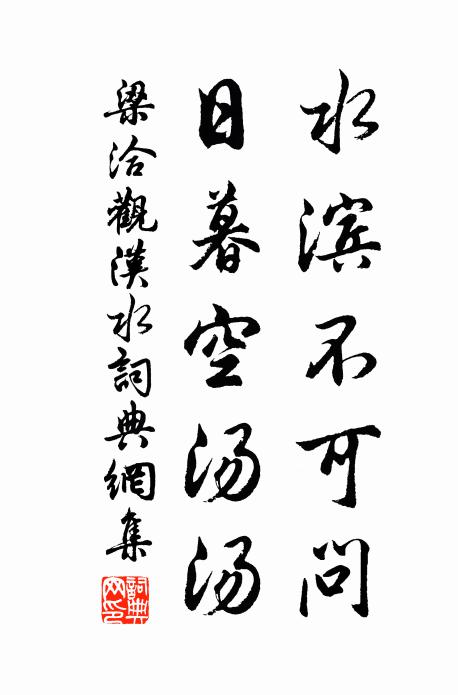 水滨不可问
日暮空汤汤
梁洽觀漢水詞典網集
詞典網印